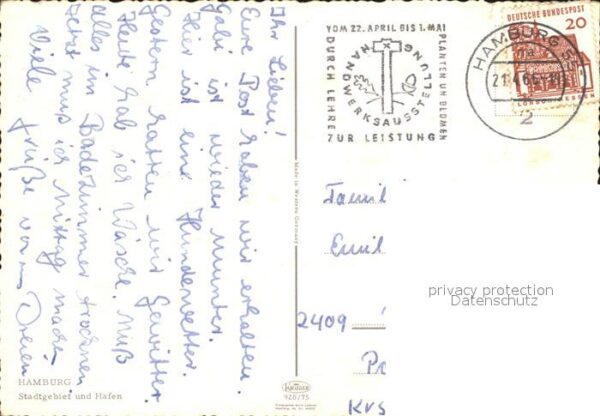 Ihr Lieben!
Eure Post haben wir erhalten
Gabi ist wieder munter.
Hier ist eine Hundewetter.
Gestern hatten wir Gewitter
Heute hab ich Wäsche. Muß
alles im Badezimmer trocknen
Jetzt muß ich Mittag machen
Viele Grüße von uns Dreien
HAMBURG
Stadtgebiet und Hafen
Made in Western Germany
KRÜGER
920/75
VOM 22. APRIL BIS 1. MAI
PLANTEN UN BLOMEN
HANDWERKSAUSSTELLUNG
DURCH LEHRE
ZUR LEISTUNG
HAMBURG
2
DEUTSCHE BUNDESPOST
20
LORSCH/HESSEN
Famil
Emil
2409
Kvs
privacy protection
Datenschutz